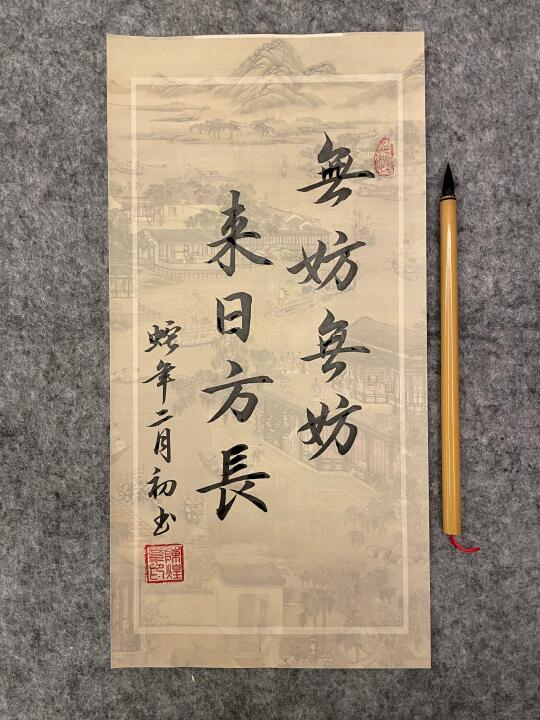 無妨無妨
来日方長
蛇年二月初书